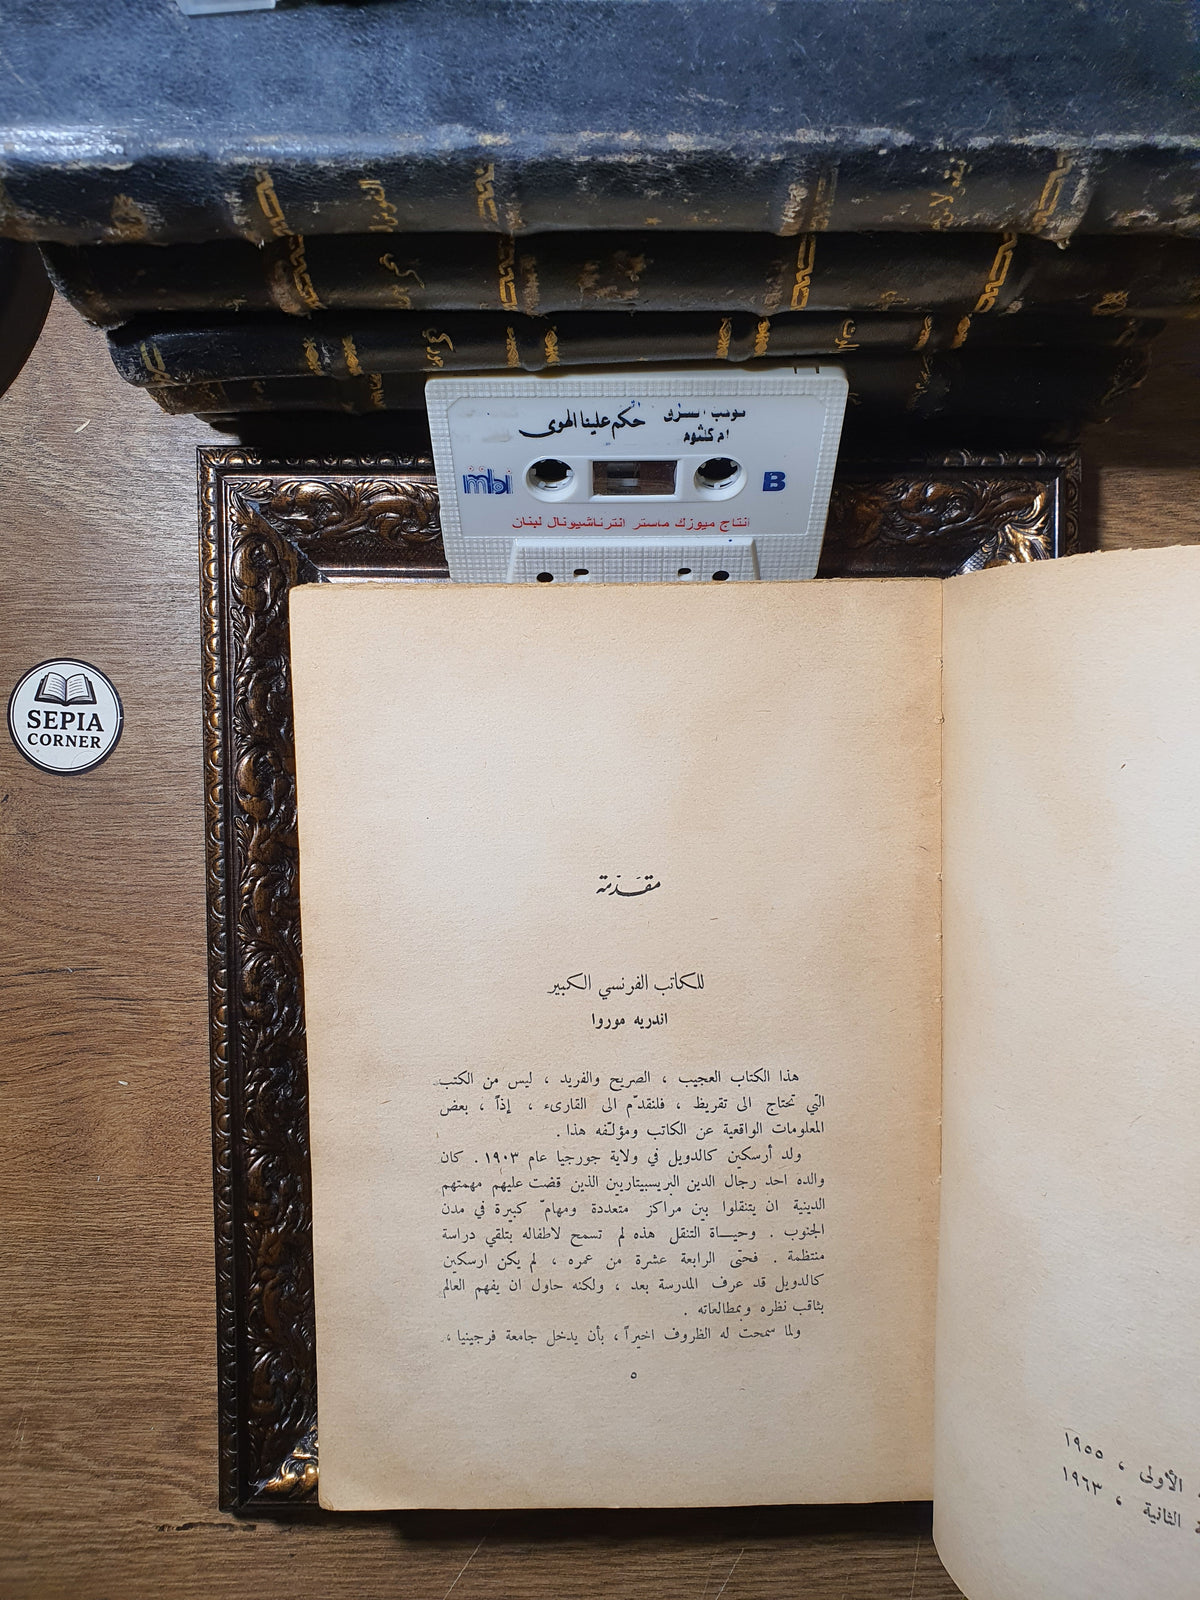 حكم علينا الهوى
ام كلثوم
mbi
B
انتاج ميوزك ماستر انترناشيونال لبنان
SEPIA
CORNER
مقدّمة
للكاتب الفرنسي الكبير
اندريه موروا
هذا الكتاب العجيب ، الصريح والفريد ، ليس من الكتب
التي تحتاج الى تقريظ ، فلنقدّم الى القارىء ، إذاً ، بعض
المعلومات الواقعية عن الكاتب ومؤلّفه هذا .
ولد أرسكين كالدويل في ولاية جورجيا عام ١٩٠٣ . كان
والده احد رجال الدين البريسبيتاريين الذين قضت عليهم مهمتهم
الدينية ان يتنقلوا بين مراكز متعددة ومهامّ كبيرة في مدن
الجنوب . وحيـاة التنقل هذه لم تسمح لاطفاله بتلقي دراسة
منتظمة . فحتى الرابعة عشرة من عمره ، لم يكن ارسكين
كالدويل قد عرف المدرسة بعد ، ولكنه حاول ان يفهم العالم
بثاقب نظره وبمطالعاته .
ولما سمحت له الظروف اخيراً ، بأن يدخل جامعة فرجينيا ،
٥
الأولى ، ١٩٥٥
الثانية ، ١٩٦٣